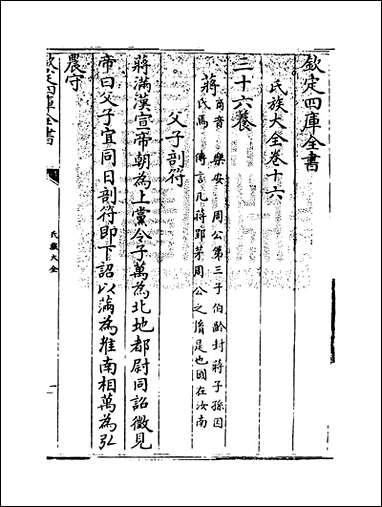 欽定四庫全書
氏族大全卷十六
三十六養
蔣
商音 樂安 周公第三子伯齡封蔣子孫因
氏焉 傳言凡蔣郉茅周公之𦙍是也國在汝南
父子剖符
蔣滿漢宣帝朝為上黨令子萬為北地都尉同詔徵見
帝曰父子宜同日剖符即下詔以滿為淮南相萬為弘
農守
欽定四庫全書
氏族大全
一